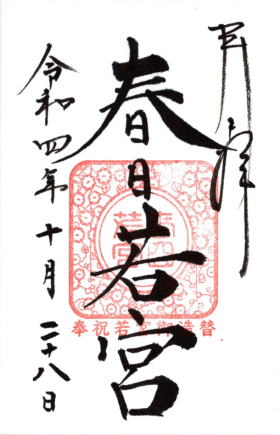 奉拝
春日若宮
奉祝若宮御造替
令和四年十月二十八日